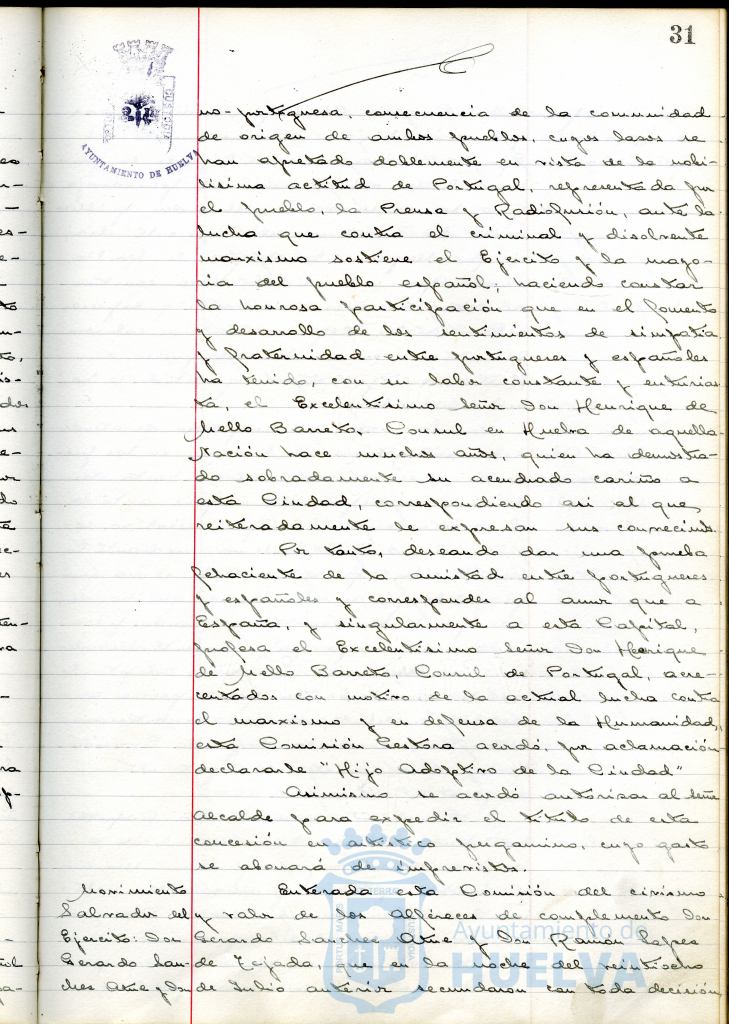 31
AYUNTAMIENTO DE HUELVA
no-portuguesa, consecuencia de la comunidad
de origen de ambos pueblos, cuyos lasos se
han apretado doblemente en vista de la nobi-
lisima actitud de Portugal, representada por
el pueblo, la Prensa y Radiofusión, ante la
lucha que contra el criminal y disolvente
marxismo sostiene el Ejercito y la mayo-
ria del pueblo español; haciendo constar
la honrosa participación que en el fomento
y desarrollo de los sentimientos de simpatia
y fraternidad entre portugueses y españoles
ha tenido, con su labor constante y entusias
ta, el Excelentisimo Señor Don Henrique de
Mello Barreto, Consul en Huelva de aquella
Nación hace muchos años, quien ha demostra-
do sobradamente su acendrado cariño a
esta Ciudad, correspondiendo asi al que
reiteradamente le expresan sus convecinos.
Por tanto, deseando dar una prueba
fehaciente de la amistad entre portugueses
y españoles y corresponder al amor que a
España, y singularmente a esta Capital,
profesa el Excelentisimo Señor Don Henrique
de Mello Barreto, Consul de Portugal, acre-
centados con motivo de la actual lucha contra
el marxismo y en defensa de la Humanidad,
esta Comisión Gestora acordó, por aclamación
declararle "Hijo Adoptivo de la Ciudad"
Asimismo se acordó autorizar al señor
Alcalde para expedir el titulo de esta
concesión en artistico pergamino, cuyo gasto
se abonará de imprevistos.
Movimiento
Salvador del
Ejercito: Don
Gerardo San-
ches Ame y Don
Enterada esta Comisión del civismo
y valor de los Alféreces de complemento Don
Gerardo Sanches Ame y Don Ramón Lopes
de Tejada, que en la noche del veintiocho
de Julio anterior secundaron con toda decisión,
Ayuntamiento de
HUELVA